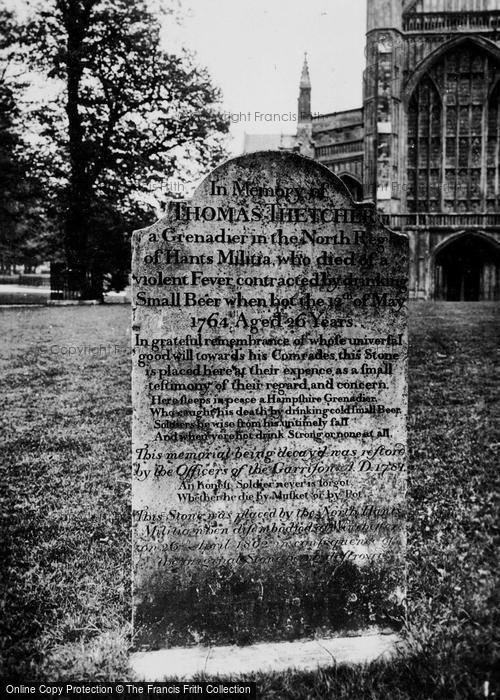 In Memory of
THOMAS THETCHER
a Grenadier in the North Reg.
of Hants Militia, who died of a
violent Fever contracted by drinking
Small Beer when hot the 12th of May
1764. Aged 26 Years.
In grateful remembrance of whose universal
good will towards his Comrades, this Stone
is placed here at their expence, as a small
testimony of their regard, and concern.
Here sleeps in peace a Hampshire Grenadier,
Who caught his death by drinking cold small Beer,
Soldiers be wise from his untimely fall
And when yere hot drink Strong or none at all.
This memorial being decay'd was restor'd
by the Officers of the Garrison A.D. 1781.
An honest Soldier never is forgot
Whether he die by Musket or by Pot.
This Stone was placed by the North Hants
Militia when disembodied at Winchester
on 26 April 1802 in consequence of
the original Stone being destroyed
© Copyright Francis Frith
Online Copy Protection © Copyright The Francis Frith Collection